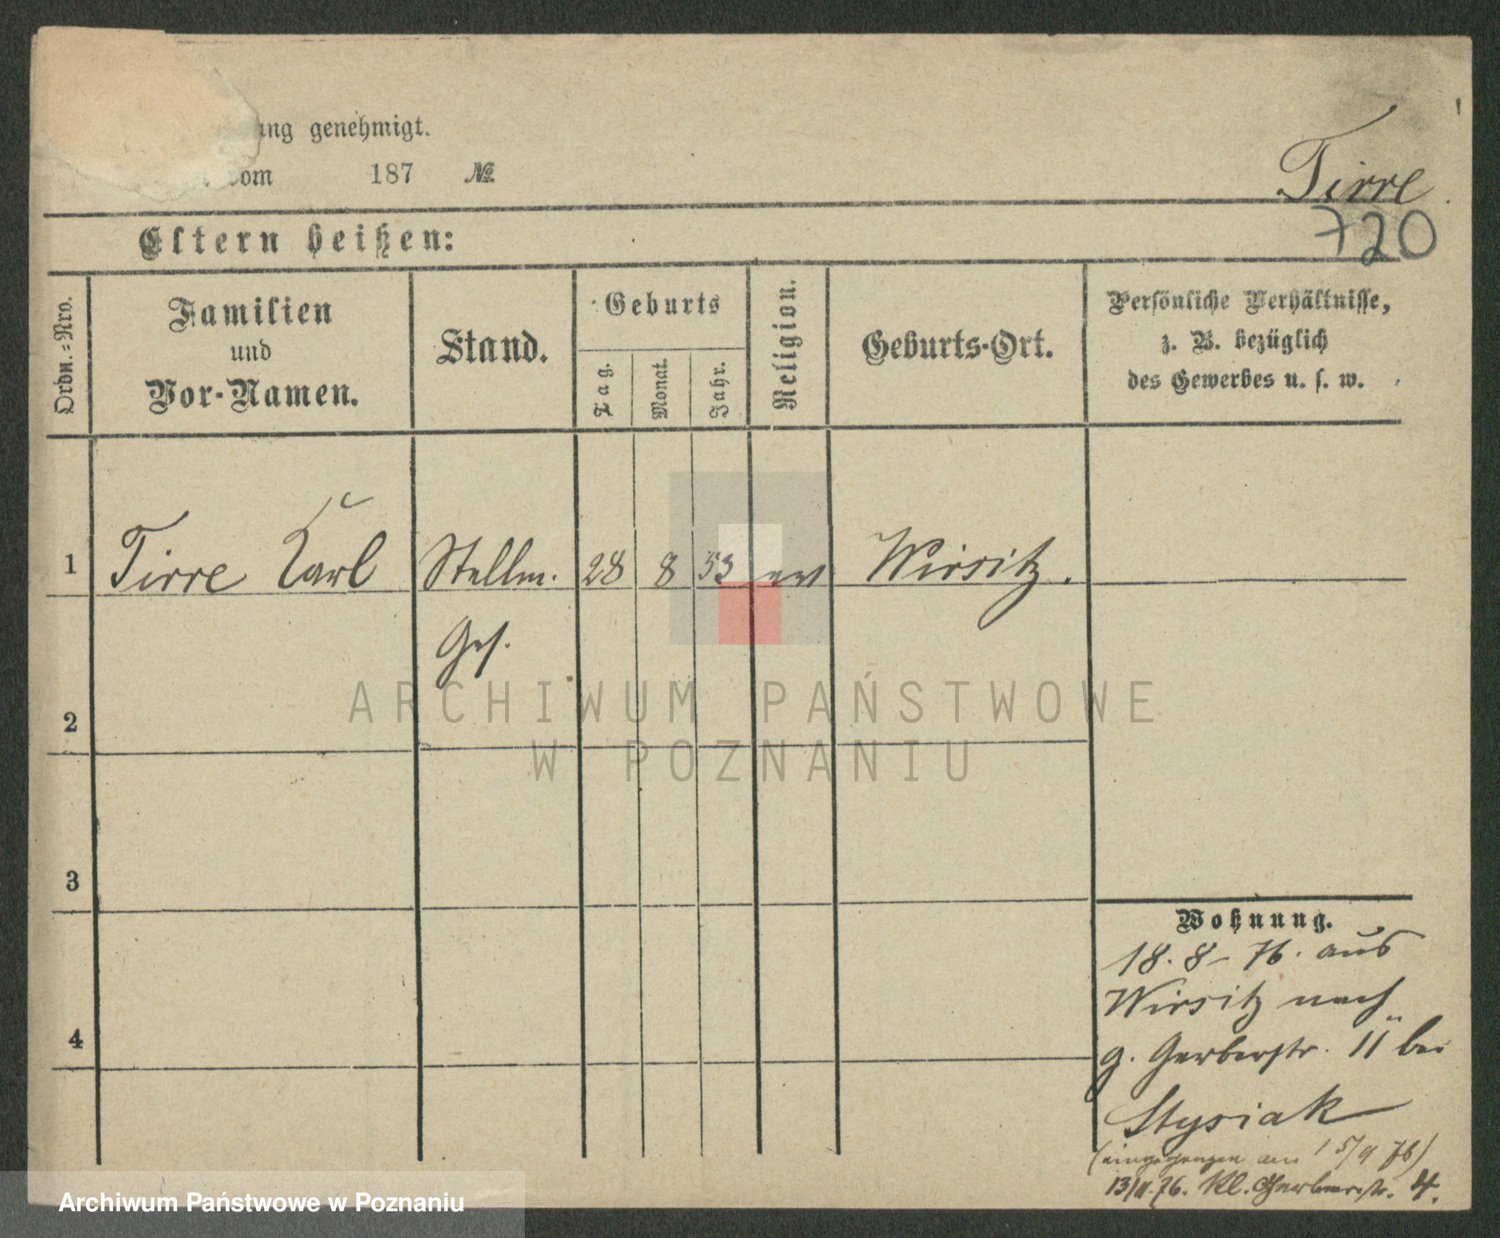 ung genehmigt.
vom 187 №.
Tirre
720
Eltern heißen:
Ordn.=Nro.
Familien
und
Vor-Namen.
Stand.
Geburts
Tag.
Monat.
Jahr.
Religion.
Geburts-Ort.
Persönliche Verhältnisse,
z. B. bezüglich
des Gewerbes u. s. w.
1 Tirre Karl Stellm. 28 8 53 ev Wirsitz.
Ges.
ARCHIWUM PAŃSTWOWE
W POZNANIU
2
3
4
Wohnung.
18. 8 - 76. aus
Wirsitz nach
g. Gerberstr. 11 bei
Stysiak
(eingegangen am 15/9 76)
13/11.76. Kl. Gerberstr. 4.
Archiwum Państwowe w Poznaniu